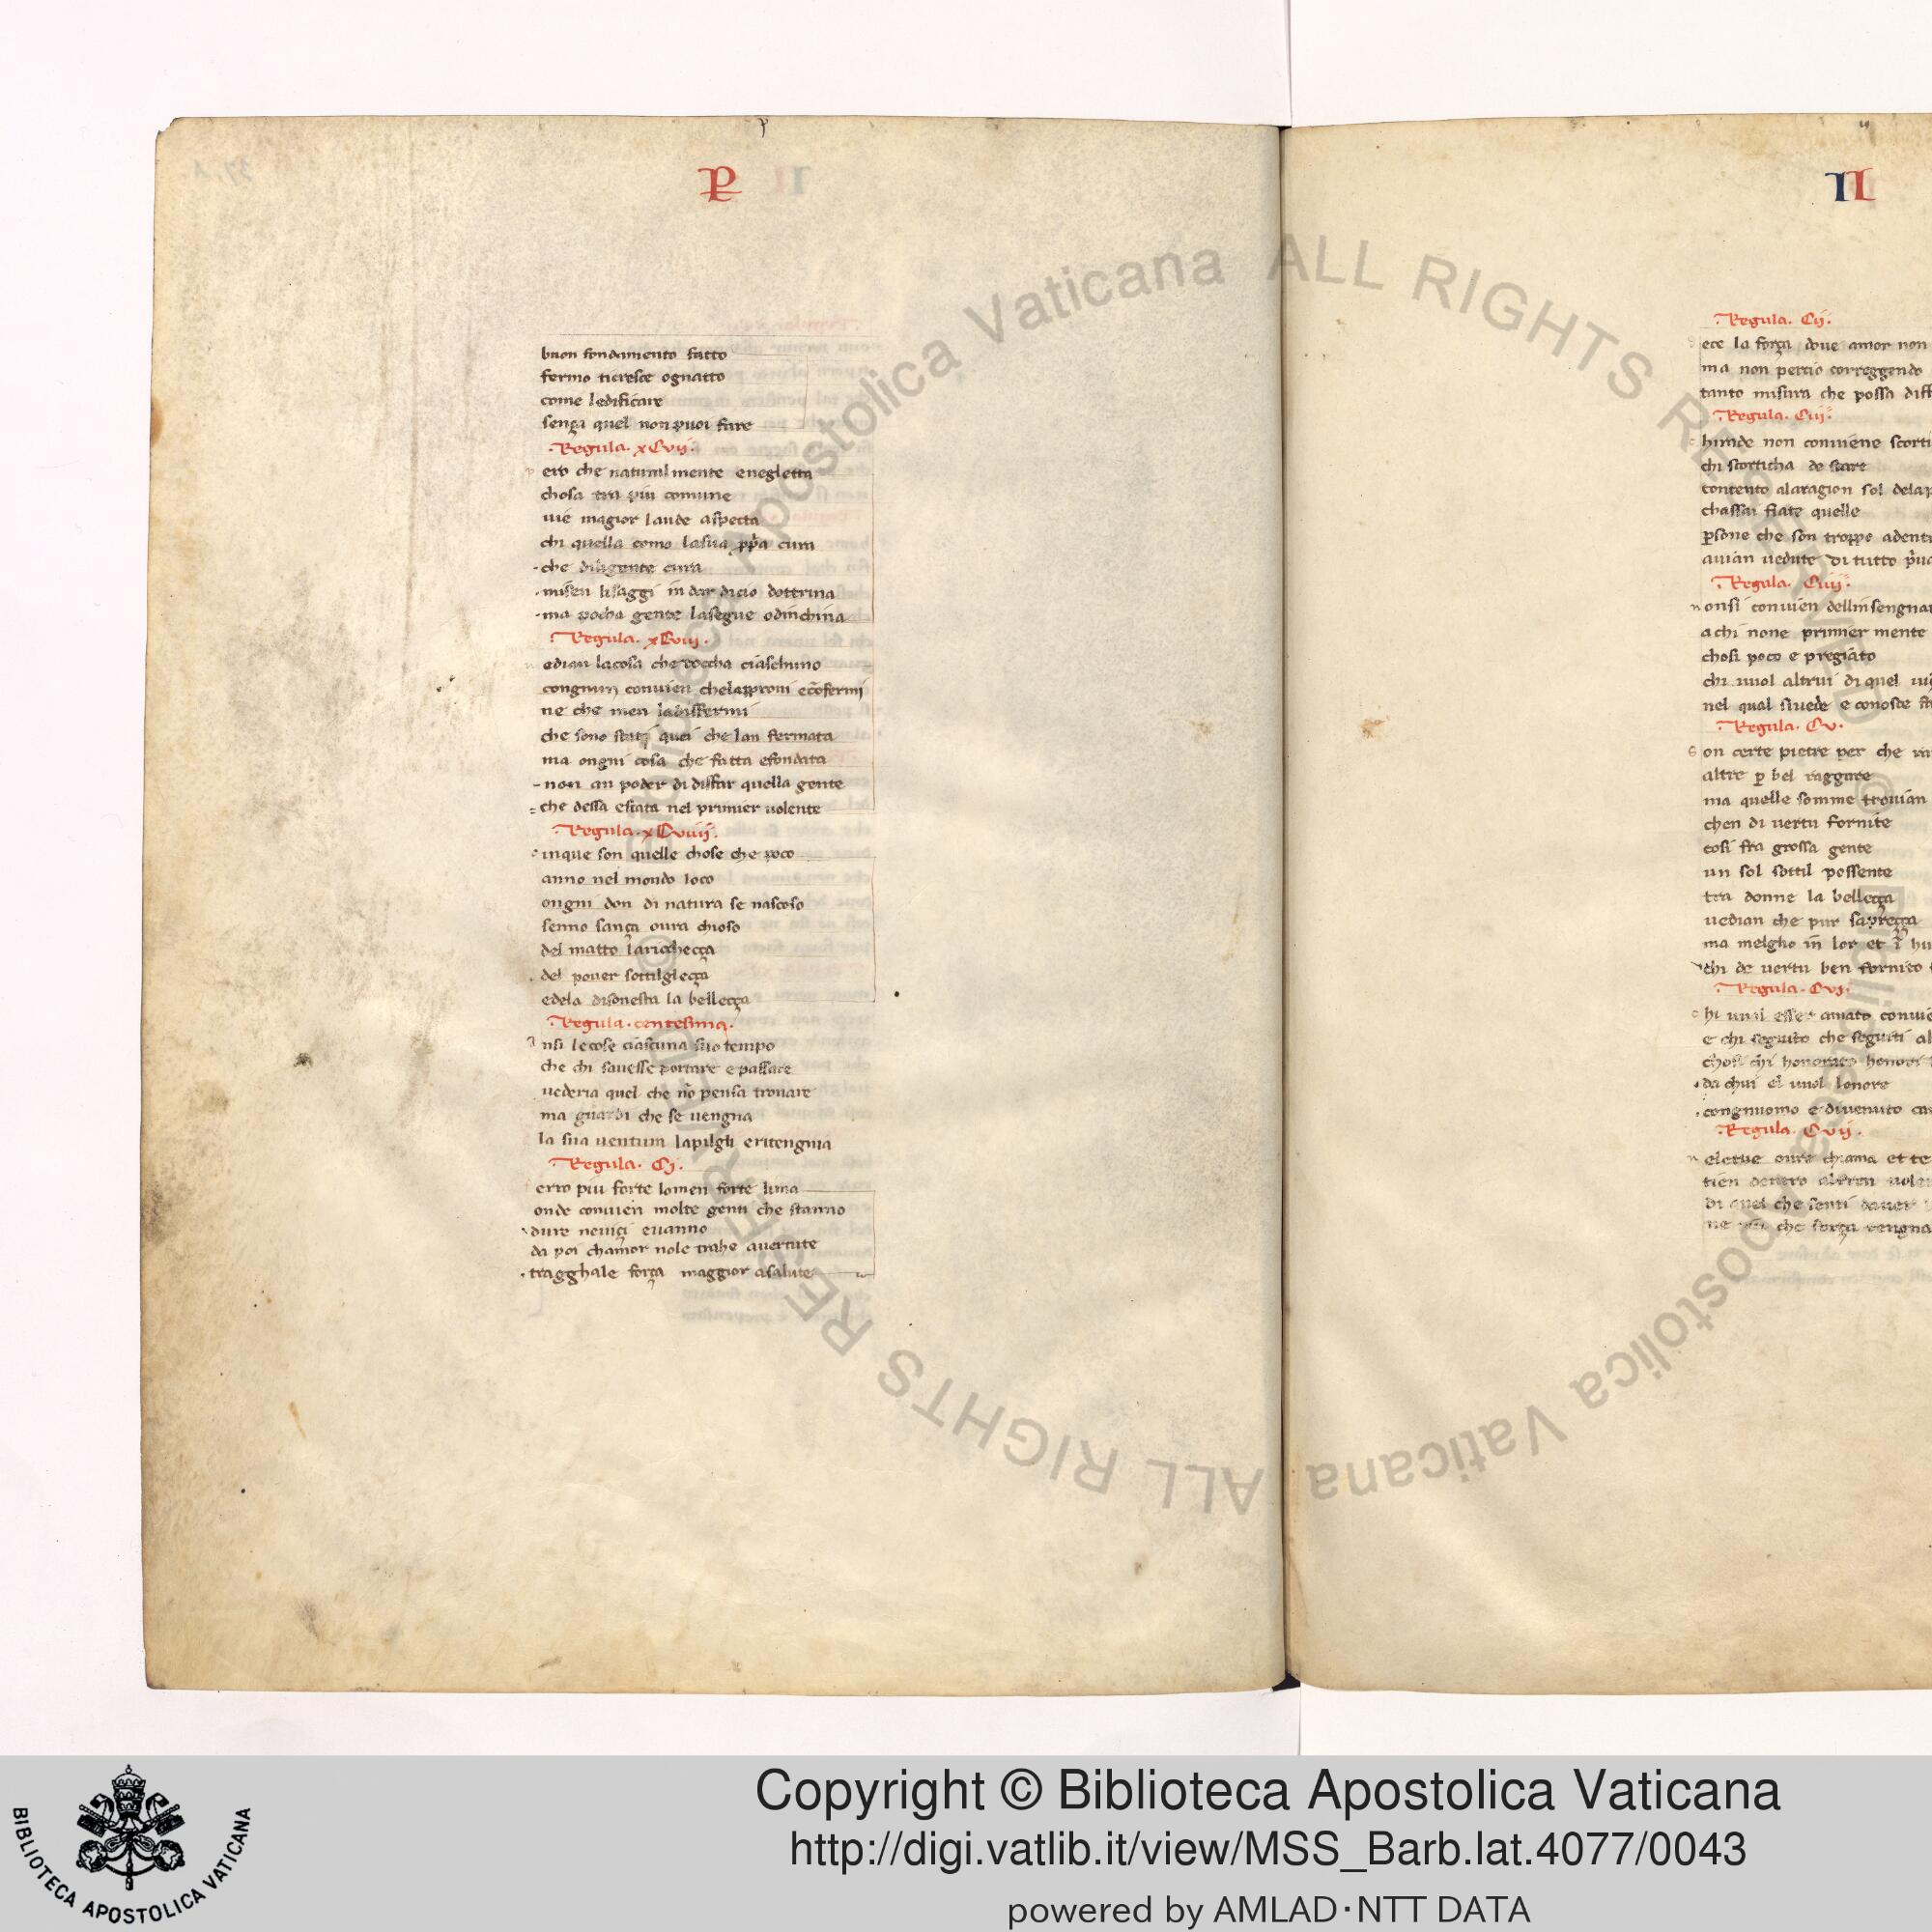 P
buon fondamento fatto
fermo ticresce ognatto
come ledificare
sença quel non puoi fare
Regula. xCvij.
ero che naturalmente enegletta
chosa tra piu comune
uie magior laude aspetta
chi quella como lasua ppa cura
che diligente cura
miseu lisaggi in dar dicio dottrina
ma pocha gente lasegue odinchina
Regula. xCviij.
edian lacosa che toccha ciaschuno
congnun conuien chelapproui ecofermi
ne che men ladiffermi
che sono stati quei che lan fermata
ma ongni cosa che fatta efondata
non an poder di disfar quella gente
che dessa estata nel primier uolente
Regula. xCviiij.
inque son quelle chose che poco
anno nel mondo loco
ongni don di natura se nascoso
senno sança oura chioso
del matto laricchecça
del pouer sottilglecça
edela disonesta la bellecça
Regula. centesima.
nsi lecose ciascuna suo tempo
che chi sauesse portare e passare
uederia quel che no pensa trouare
ma guardi che se uengna
la sua uentura lapilgli eritengnia
Regula. Cj.
erro piu forte lomen forte lima
onde conuien molte genti che stanno
dure neuiçi euanno
da poi chamor nole trahe auertute
tragghale força maggior asalute
II
Regula. Cij.
ece la força doue amor non
ma non percio correggendo
tanto misura che possa diff
Regula. Ciij.
hunde non conuiene scorti
chi scorticha de stare
contento alaragion sol delap
chassai fiate quelle
psone che son troppo adent
auian uedute di tutto pua
Regula. Ciiij.
onsi conuien dellinsengnar
achi none primier mente
chosi poco e pregiato
chi uuol altrui di quel
nel qual siuede e conosce
Regula. Cv.
on certe pietre per che
altre p bel raggare
ma quelle somme trouian
chen di uertu fornite
cosi fra grossa gente
un sol sottil possente
tra donne la bellecça
uedian che pur sapreçça
ma melglio in lor et i hu
chi de uertu ben fornito
Regula. Cvj.
hi uuol esser amato conuie
e chi seguito che seguiti al
chosi chi honorato honori
da chui el uuol lonore
congnuomo e diuenuto
Regula. Cvij.
eletue oure chiama et te
tien dentro
di quel che senti dauer
che força uengna
© Biblioteca Apostolica Vaticana ALL RIGHTS RESERVED © Biblioteca Apostolica Vaticana ALL RIGHTS RESERVED
BIBLIOTECA APOSTOLICA VATICANA
Copyright © Biblioteca Apostolica Vaticana
http://digi.vatlib.it/view/MSS_Barb.lat.4077/0043
powered by AMLAD·NTT DATA